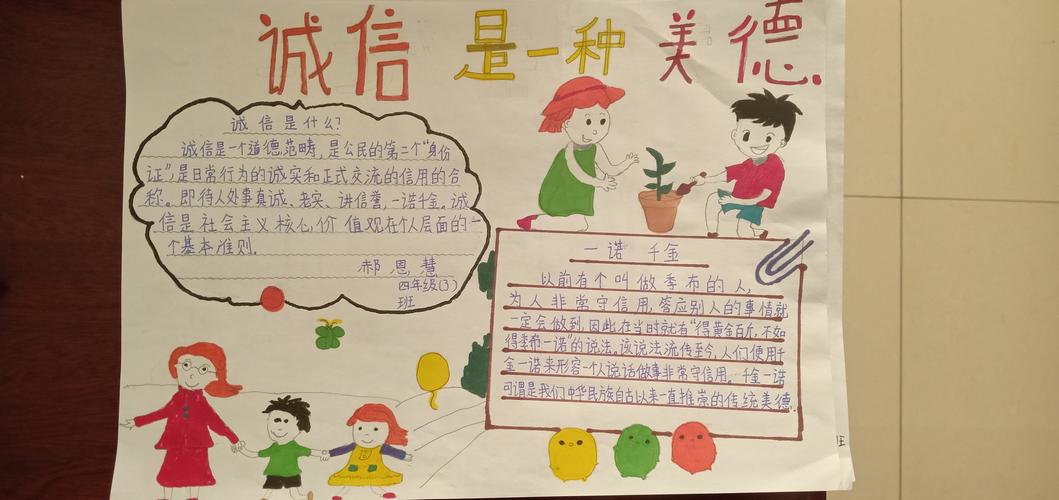 诚信是一种美德
诚信是什么?
诚信是一个道德范畴,是公民的第二个“身份
证”,是日常行为的诚实和正式交流的信用的合
称。即待人处事真诚、老实、讲信誉,一诺千金。诚
信是社会主义核心价值观在个人层面的一
个基本准则。
郝恩慧
四年级(3)
班
一诺千金
以前有个叫做季布的人,
为人非常守信用,答应别人的事情就
一定会做到,因此,在当时就有“得黄金百斤,不如
得季布一诺”的说法。该说法流传至今,人们便用千
金一诺来形容一个人说话做事非常守信用。千金一诺
可谓是我们中华民族自古以来一直推崇的传统美德。
班